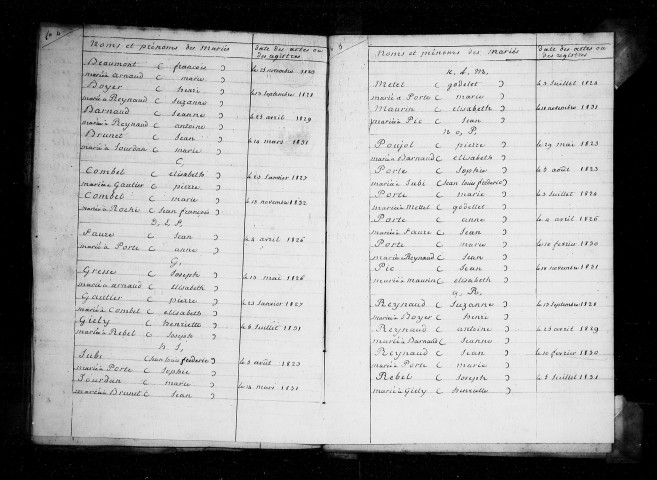 Noms et prénoms des mariés
date des actes ou des registres
Beaumont ( françois )
marié a arnaud ( marie )
le 25 novembre 1823
Boyer ( henri )
marié a Reynaud ( suzanne )
le 13 septembre 1828
Barnaud ( Jeanne )
mariée a Reynaud ( antoine )
le 25 avril 1829
Brunet ( Jean )
marié a Jourdan ( marie )
le 14 mars 1831
C,
Combel ( elisabeth )
mariée a Gautier ( pierre )
le 23 Janvier 1827
Combel ( marie )
mariée a Roche ( Jean françois )
le 18 novembre 1832
D, E, F,
Faure ( Jean )
marié a Porte ( anne )
le 4 avril 1826
G,
Gresse ( Joseph )
marié a arnaud ( elisabeth )
le 13 mai 1826
Gautier ( pierre )
marié a Combel ( elisabeth )
le 23 Janvier 1827
Giely ( henriette )
mariée a Rebel ( Joseph )
le 8 Juillet 1831
h J,
Jubi ( Jean louis fréderic )
marié a Porte ( Sophie )
le 5 août 1823
Jourdan ( marie )
mariée a Brunet ( Jean )
le 14 mars 1831
Noms et prénoms des mariés
date des actes ou des registres
K, L, M,
Metel ( godelet )
marié a Porte ( marie )
le 3 Juillet 1824
Maurin ( elisabeth )
mariée a Pic ( Jean )
le 10 novembre 1831
n o, P,
Poujol ( pierre )
marié a Barnaud ( elisabeth )
le 29 mai 1823
Porte ( Sophie )
mariée a Jubi ( Jean louis fréderic )
le 5 août 1823
Porte ( marie )
mariée a Mettel ( godellet )
le 3 Juillet 1824
Porte ( anne )
mariée a Faure ( Jean )
le 4 avril 1826
Porte ( marie )
mariée Reynaud ( Jean )
le 10 février 1830
Pic ( Jean )
marié a maurin ( elisabeth )
le 10 novembre 1831
Q, R,
Reynaud ( Suzanne )
mariée a Boyer ( henri )
le 13 septembre 1828
Reynaud ( antoine )
marié a Barnaud ( Jeanne )
le 25 avril 1829
Reynaud ( Jean )
marié a Porte ( marie )
le 10 février 1830
Rebel ( Joseph )
marié a Giely ( henriette )
le 8 Juillet 1831